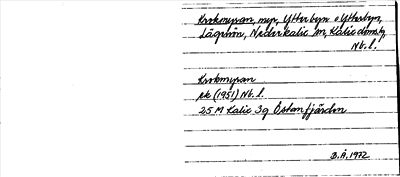 Krokmyran, myr, Ytterbyn o Ytterbyn,
Lågrån, Nederkalix sn, Kalix domsg,
Nb. l.
Krokmyran
ek (1951) Nb. l.
25 M Kalix 3g Östanfjärden
B.Å. 1972